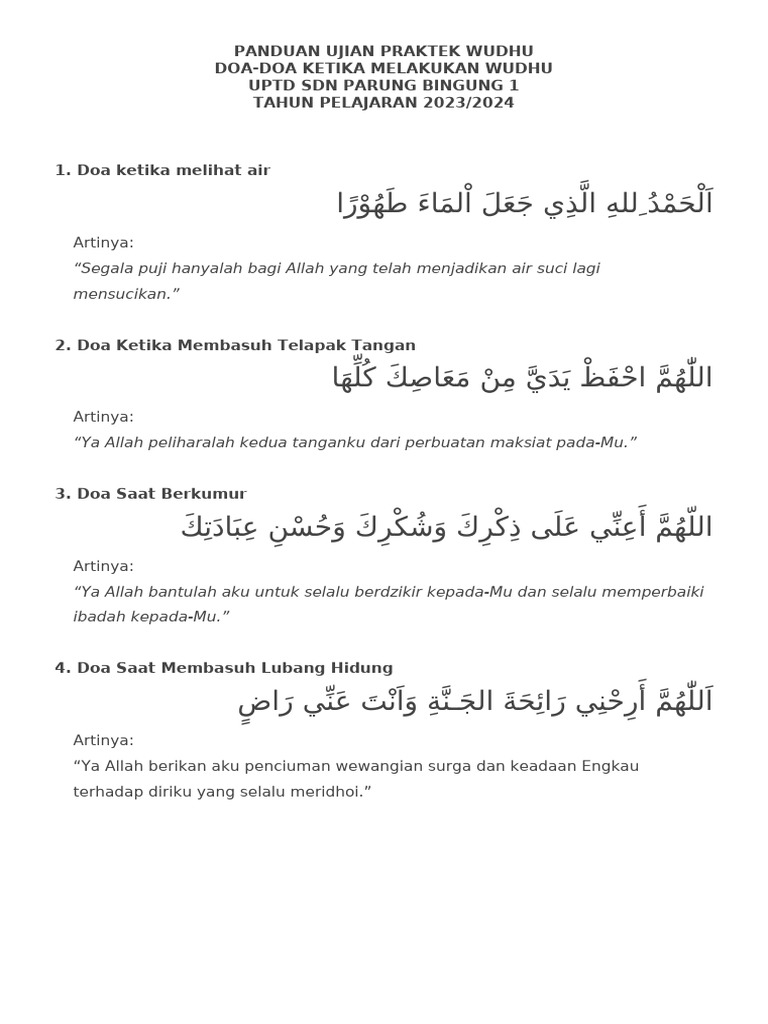 PANDUAN UJIAN PRAKTEK WUDHU
DOA-DOA KETIKA MELAKUKAN WUDHU
UPTD SDN PARUNG BINGUNG 1
TAHUN PELAJARAN 2023/2024
1. Doa ketika melihat air
اَلْحَمْدُ ِللهِ الَّذِي جَعَلَ اْلمَاءَ طَهُوْرًا
Artinya:
“Segala puji hanyalah bagi Allah yang telah menjadikan air suci lagi
mensucikan.”
2. Doa Ketika Membasuh Telapak Tangan
اللّٰهُمَّ احْفَظْ يَدَيَّ مِنْ مَعَاصِكَ كُلِّهَا
Artinya:
“Ya Allah peliharalah kedua tanganku dari perbuatan maksiat pada-Mu.”
3. Doa Saat Berkumur
اللّهُمَّ أَعِنِّي عَلَى ذِكْرِكَ وَشُكْرِكَ وَحُسْنِ عِبَادَتِكَ
Artinya:
“Ya Allah bantulah aku untuk selalu berdzikir kepada-Mu dan selalu memperbaiki
ibadah kepada-Mu.”
4. Doa Saat Membasuh Lubang Hidung
اَللّٰهُمَّ أَرِحْنِي رَائِحَةَ الجَـنَّةِ وَاَنْتَ عَنِّي رَاضٍ
Artinya:
“Ya Allah berikan aku penciuman wewangian surga dan keadaan Engkau
terhadap diriku yang selalu meridhoi.”